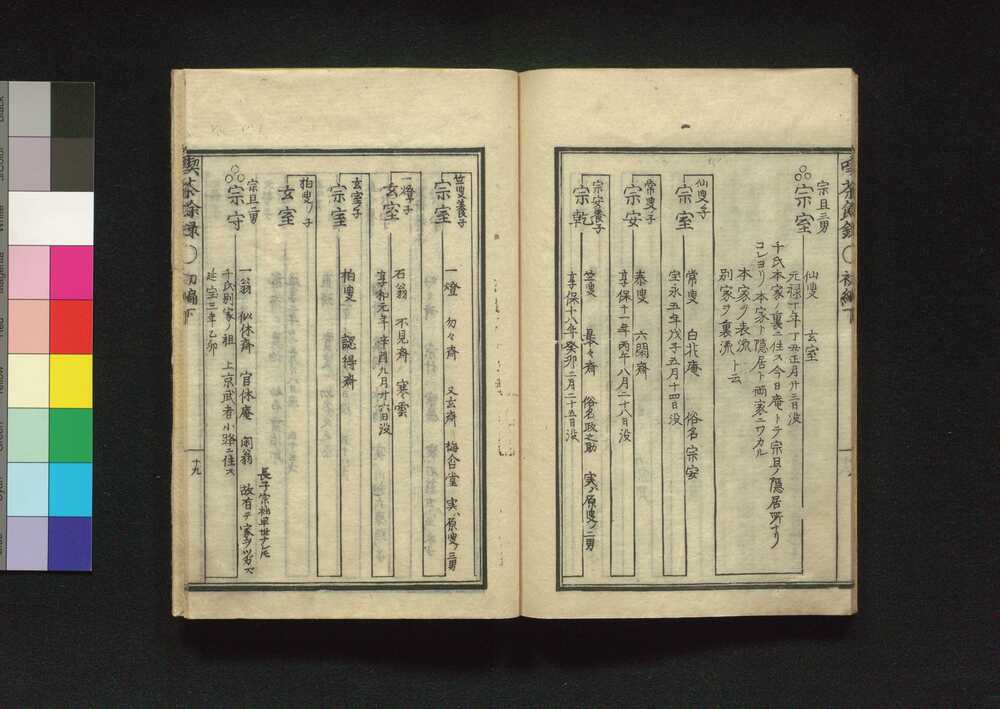 宗旦三男
宗室
仙叟 玄室
元禄丁年丁丑正月廿三日没
千氏本家ノ裏ニ住ス今日庵トテ宗旦ノ隠居所ナリ
コレヨリ本家ト隠居ト両家ニワカル
本家ヲ表流
別家ヲ裏流 ト云
仙叟子
宗室
常叟 白北庵 俗名宗安
宝永五年戊子五月十四日没
常叟子
宗安
泰叟 六閑斎
享保十一年丙午八月二十八日没
宗安養子
宗乾
竺叟 最々斎 俗名政之助 実ハ原叟ノ二男
享保十八年癸卯二月二十五日没
竺叟養子
宗室
一燈 勿々斎 又玄斎 梅合堂 実ハ原叟ノ三男
一燈子
玄室
石翁 不見斎 寒雲
享和元年辛酉九月廿六日没
玄室子
宗室
柏叟 認得斎
柏叟ノ子
玄室
宗旦二男
宗守
長子宗袖早世ナレ𪜈
一翁 似休斎 官休庵 閑翁 故有テ家ヲツカズ
千氏別家ノ祖 上京武者小路ニ住ス
延宝三年乙卯
喫茶余録 初編下
十九